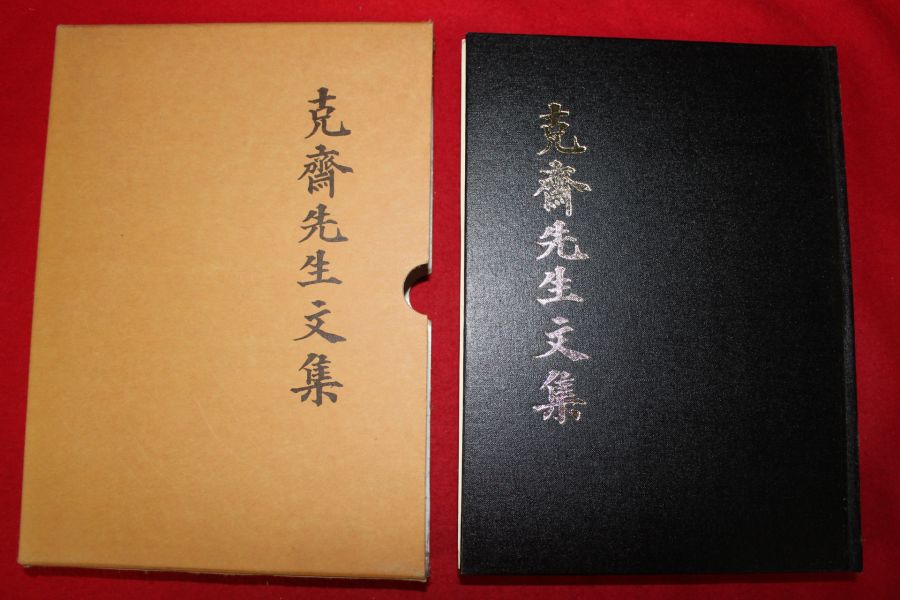 克齋先生文集
克齋先生文集